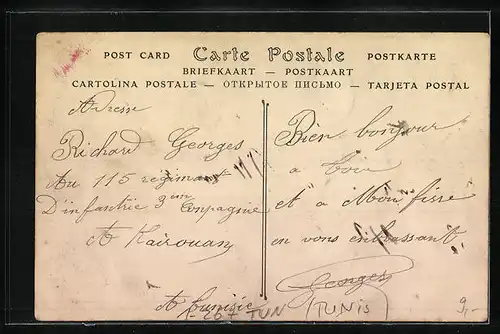 POST CARD Carte Postale POSTKARTE
BRIEFKAART — POSTKAART
CARTOLINA POSTALE — ОТКРЫТОЕ ПИСЬМО — TARJETA POSTAL
Adresse
Richard Georges
Au 115 regimant
D'infantrie 3em Conpagnie
A Kairouan
A tunisie
Bien bonjour
a toi
et a Mon
en vons enbrassant
Georges
TUN (TUNIS)
9,-